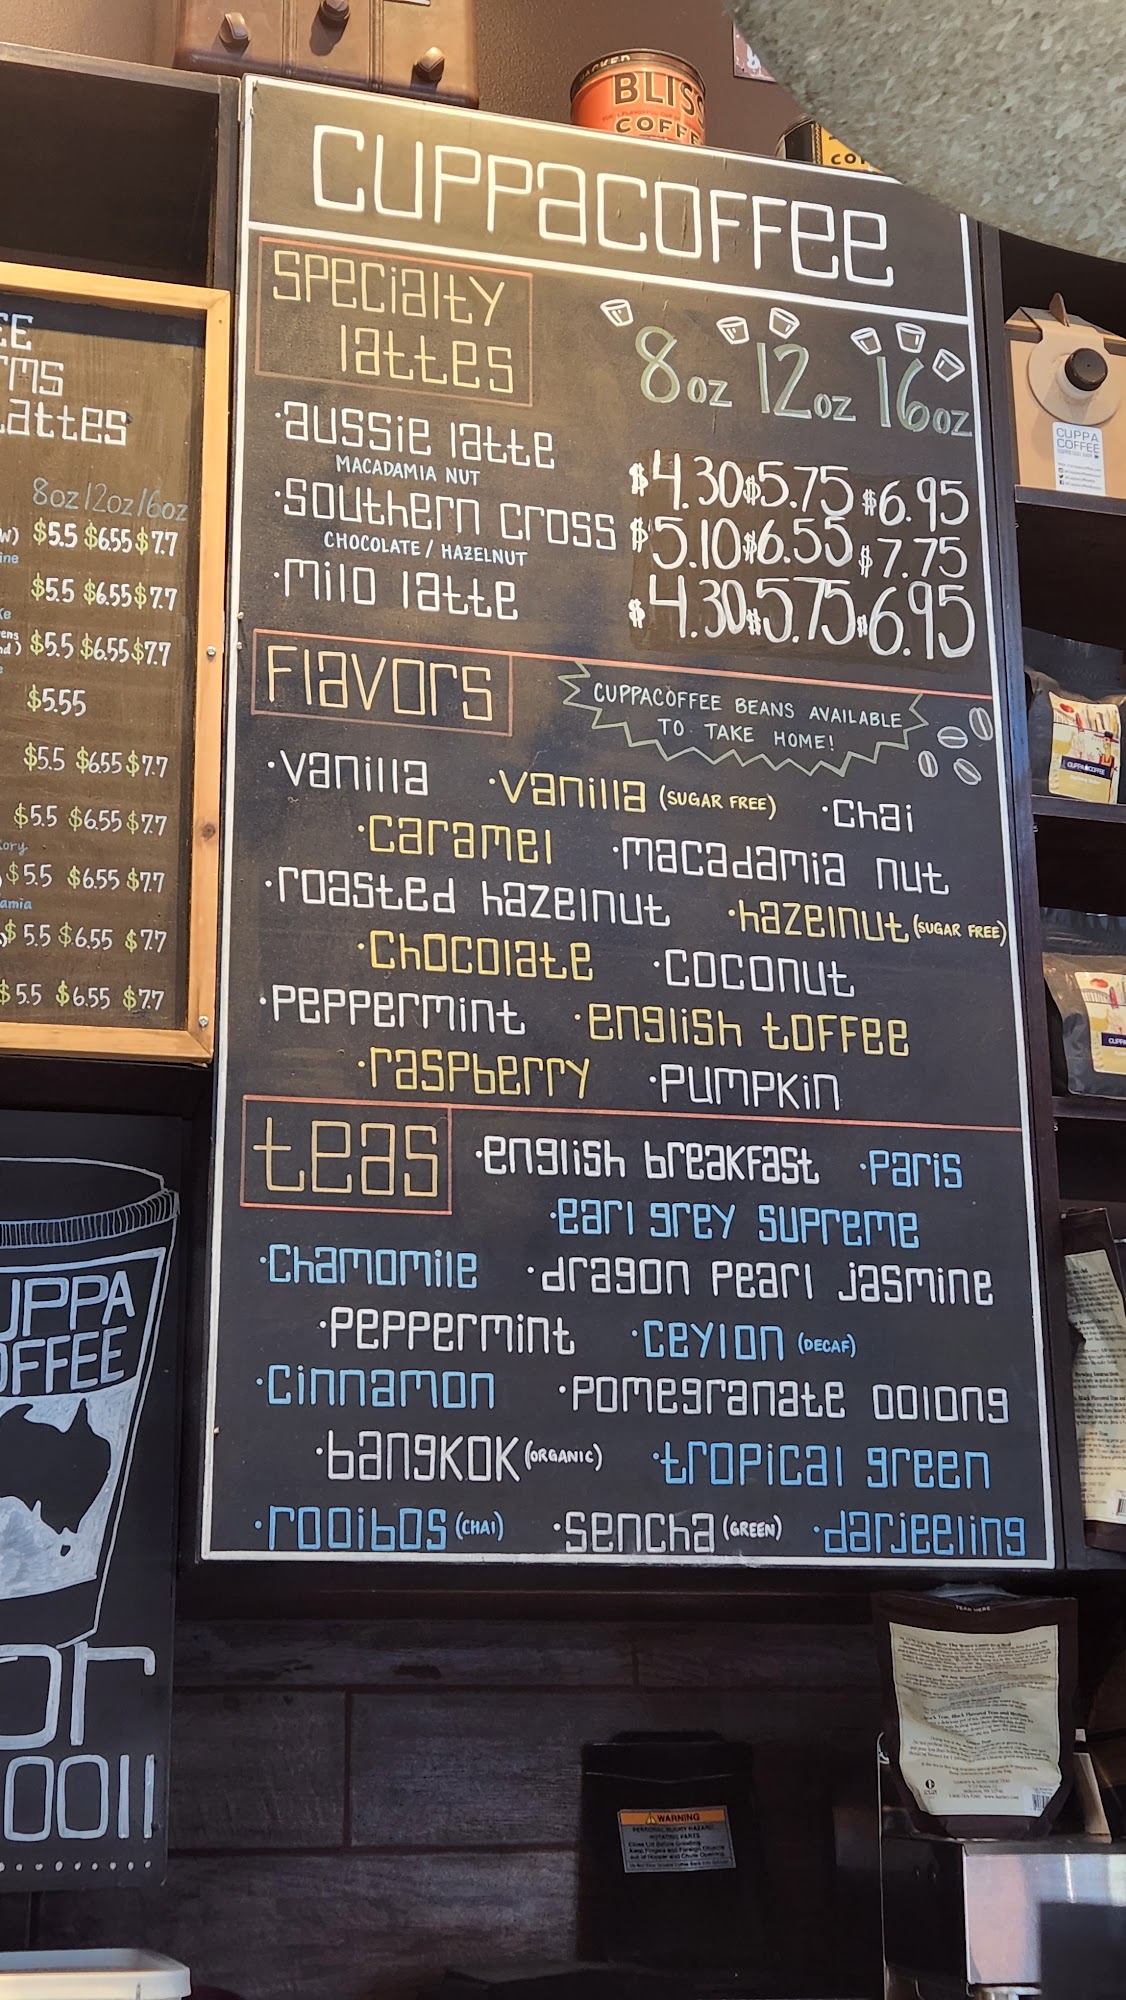 BLISS
COFFE
CO
CUPPACOFFEE
SPECIALTY
LATTES
8oz 12oz 16oz
·AUSSIE LATTE $4.30 $5.75 $6.95
MACADAMIA NUT
·SOUTHERN CROSS $5.10 $6.55 $7.75
CHOCOLATE / HAZELNUT
·MILO LATTE $4.30 $5.75 $6.95
FLAVORS
CUPPACOFFEE BEANS AVAILABLE
TO TAKE HOME!
·VANILLA ·VANILLA (SUGAR FREE) ·CHAI
·CARAMEL ·MACADAMIA NUT
·ROASTED HAZELNUT ·HAZELNUT (SUGAR FREE)
·CHOCOLATE ·COCONUT
·PEPPERMINT ·ENGLISH TOFFEE
·RASPBERRY ·PUMPKIN
TEAS
·ENGLISH BREAKFAST ·PARIS
·EARL GREY SUPREME
·CHAMOMILE ·DRAGON PEARL JASMINE
·PEPPERMINT ·CEYLON (DECAF)
·CINNAMON ·POMEGRANATE OOLONG
·BANGKOK (ORGANIC) ·TROPICAL GREEN
·ROOIBOS (CHAI) ·SENCHA (GREEN) ·DARJEELING
EE
RMS
LATTES
8oz/12oz/16oz
W) $5.5 $6.55 $7.7
ine
$5.5 $6.55 $7.7
ke
$5.5 $6.55 $7.7
$5.55
$5.5 $6.55 $7.7
$5.5 $6.55 $7.7
kory
$5.5 $6.55 $7.7
amia
$5.5 $6.55 $7.7
$5.5 $6.55 $7.7
UPPA
OFFEE
or
ooll
CUPPA
COFFEE
CUPPACOFFEE
TEAR HERE
WARNING